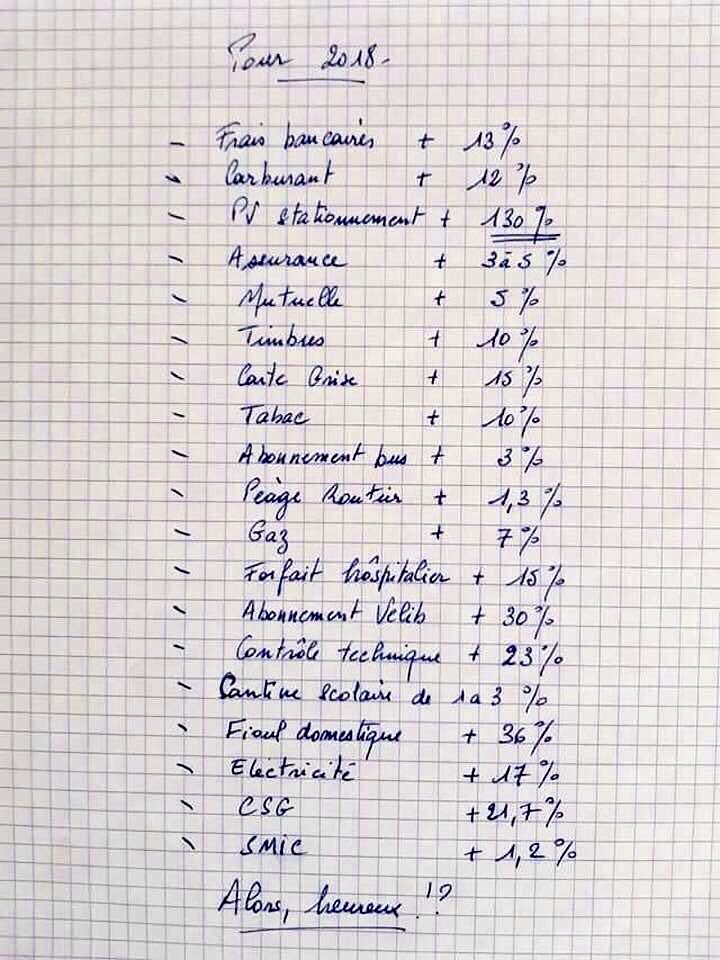 Pour 2018.
- Frais bancaires + 13 %
- Carburant + 12 %
- PV stationnement + 130 %
- Assurance + 3 à 5 %
- Mutuelle + 5 %
- Timbres + 10 %
- Carte Grise + 15 %
- Tabac + 10 %
- Abonnement bus + 3 %
- Péage Routier + 1,3 %
- Gaz + 7 %
- Forfait hôspitalier + 15 %
- Abonnement Vélib + 30 %
- Contrôle technique + 23 %
- Cantine scolaire de 1 a 3 %
- Fioul domestique + 36 %
- Electricité + 17 %
- CSG + 21,7 %
- SMIC + 1,2 %
Alors, heureux !?